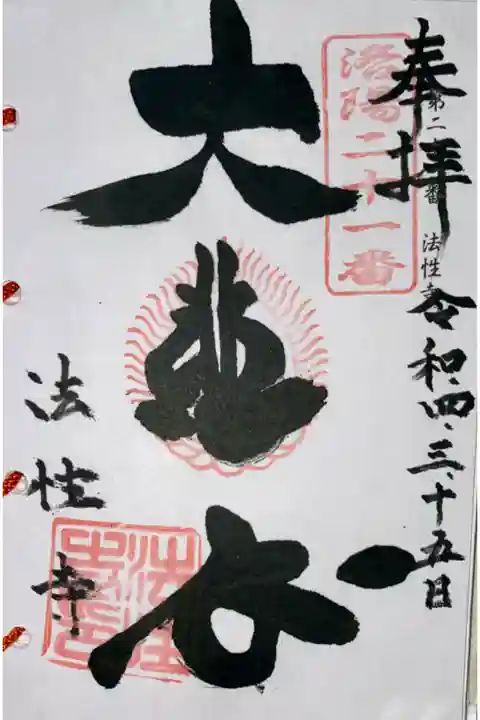 奉拝
令和四、三、十五日
第二 番 法性寺
洛陽二十一番
大悲
法性寺